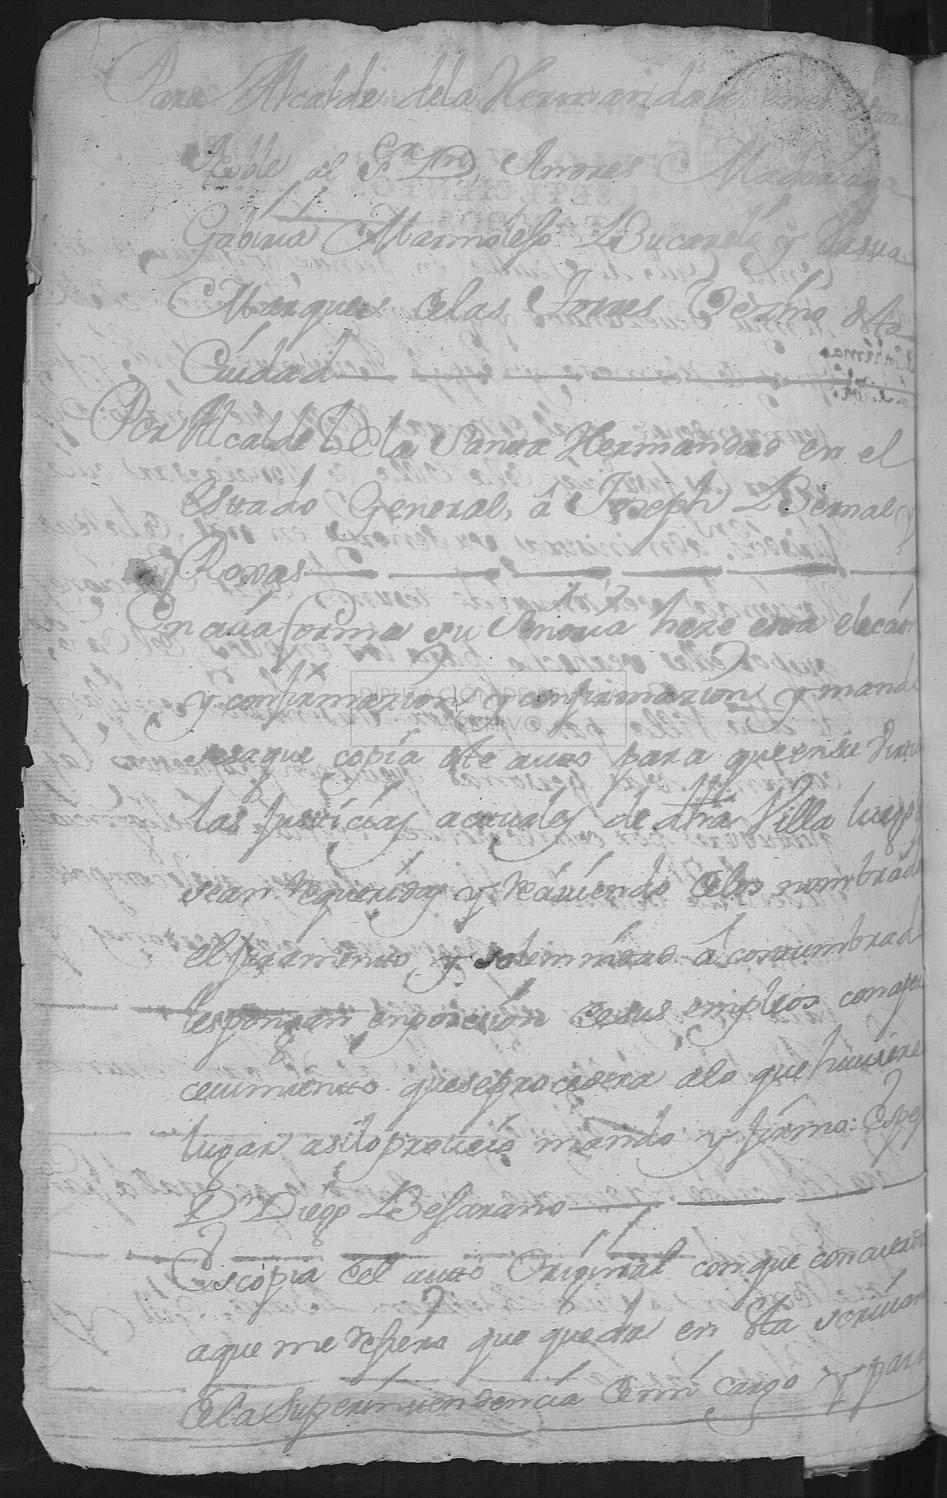 Para Alcalde dela Hermandad en el esta
Noble al Sr. Dn. Andres Madariaga
Gabiria Marmolejo Bucareli y
Marques delas Torres Vezino dsta
Ciudad
Por Alcalde De la Santa Hermandad en el
estado General, á Joseph Bernal y
Roxas
En cuia forma su Señoria haze esta elecion
y confirmazion y confirmazion y manda
sesaque copia dste auto para que en su virtud
las justicias actuales de dtra Villa luego q
sean requeridas y reciviendo delos nombrados
el juramento y solemnidad acostumbrad
les pongan en posesion desus empleos con aper
ceuimiento que se procedera alo que huuiere
lugar asilo proveio mando y firmo:
Dn Diego Besarano
Es copia del auto Original con que concuerda
aque me refiero que queda en dsta scriuan
dela Superintendencia demi cargo y para